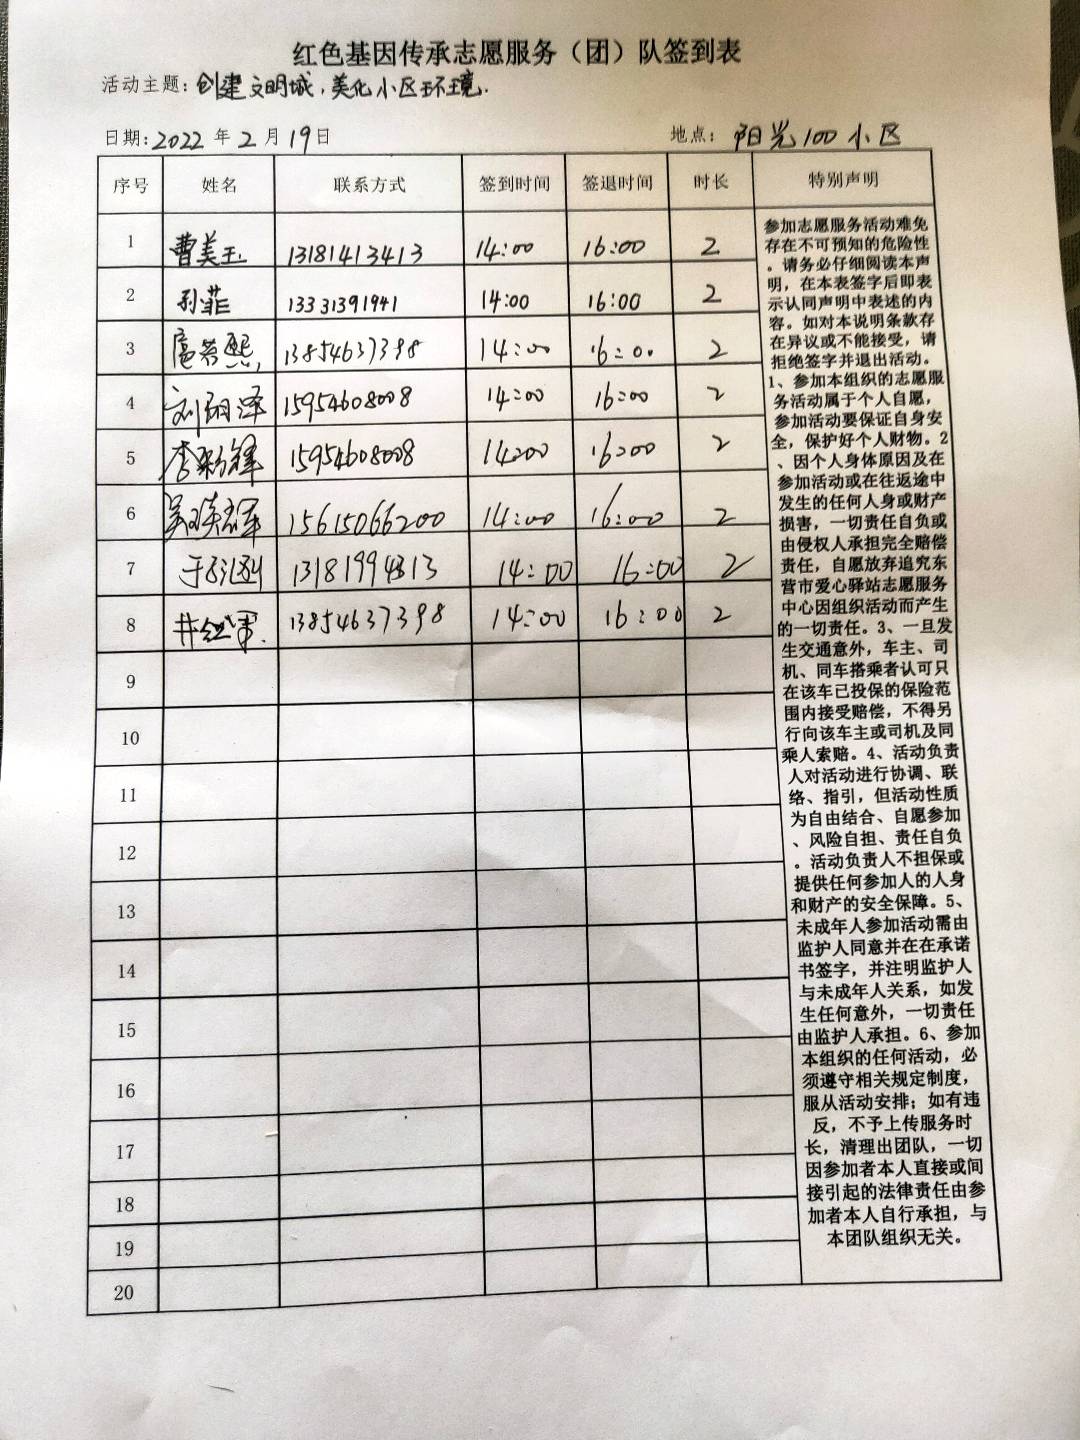 红色基因传承志愿服务（团）队签到表
活动主题：创建文明城，美化小区环境.
日期：2022 年 2 月 19 日 地点： 阳光100小区
序号 姓名 联系方式 签到时间 签退时间 时长 特别声明
1 曹美玉 13181413413 14:00 16:00 2
2 孙菲 13331391941 14:00 16:00 2
3 扈若熙 13854637398 14:00 16:00 2
4 刘 泽 15954608008 14:00 16:00 2
5 李 锋 15954608008 14:00 16:00 2
6 吴 军 15615066200 14:00 16:00 2
7 于 13181994313 14:00 16:00 2
8 井 军 13854637398 14:00 16:00 2
9
10
11
12
13
14
15
16
17
18
19
20
参加志愿服务活动难免
存在不可预知的危险性
。请务必仔细阅读本声
明，在本表签字后即表
示认同声明中表述的内
容。如对本说明条款存
在异议或不能接受，请
拒绝签字并退出活动。
1、参加本组织的志愿服
务活动属于个人自愿，
参加活动要保证自身安
全，保护好个人财物。2
、因个人身体原因及在
参加活动或在往返途中
发生的任何人身或财产
损害，一切责任自负或
由侵权人承担完全赔偿
责任，自愿放弃追究东
营市爱心驿站志愿服务
中心因组织活动而产生
的一切责任。3、一旦发
生交通意外，车主、司
机、同车搭乘者认可只
在该车已投保的保险范
围内接受赔偿，不得另
行向该车主或司机及同
乘人索赔。4、活动负责
人对活动进行协调、联
络、指引，但活动性质
为自由结合、自愿参加
、风险自担、责任自负
。活动负责人不担保或
提供任何参加人的人身
和财产的安全保障。5、
未成年人参加活动需由
监护人同意并在在承诺
书签字，并注明监护人
与未成年人关系，如发
生任何意外，一切责任
由监护人承担。6、参加
本组织的任何活动，必
须遵守相关规定制度，
服从活动安排；如有违
反，不予上传服务时
长，清理出团队，一切
因参加者本人直接或间
接引起的法律责任由参
加者本人自行承担，与
本团队组织无关。